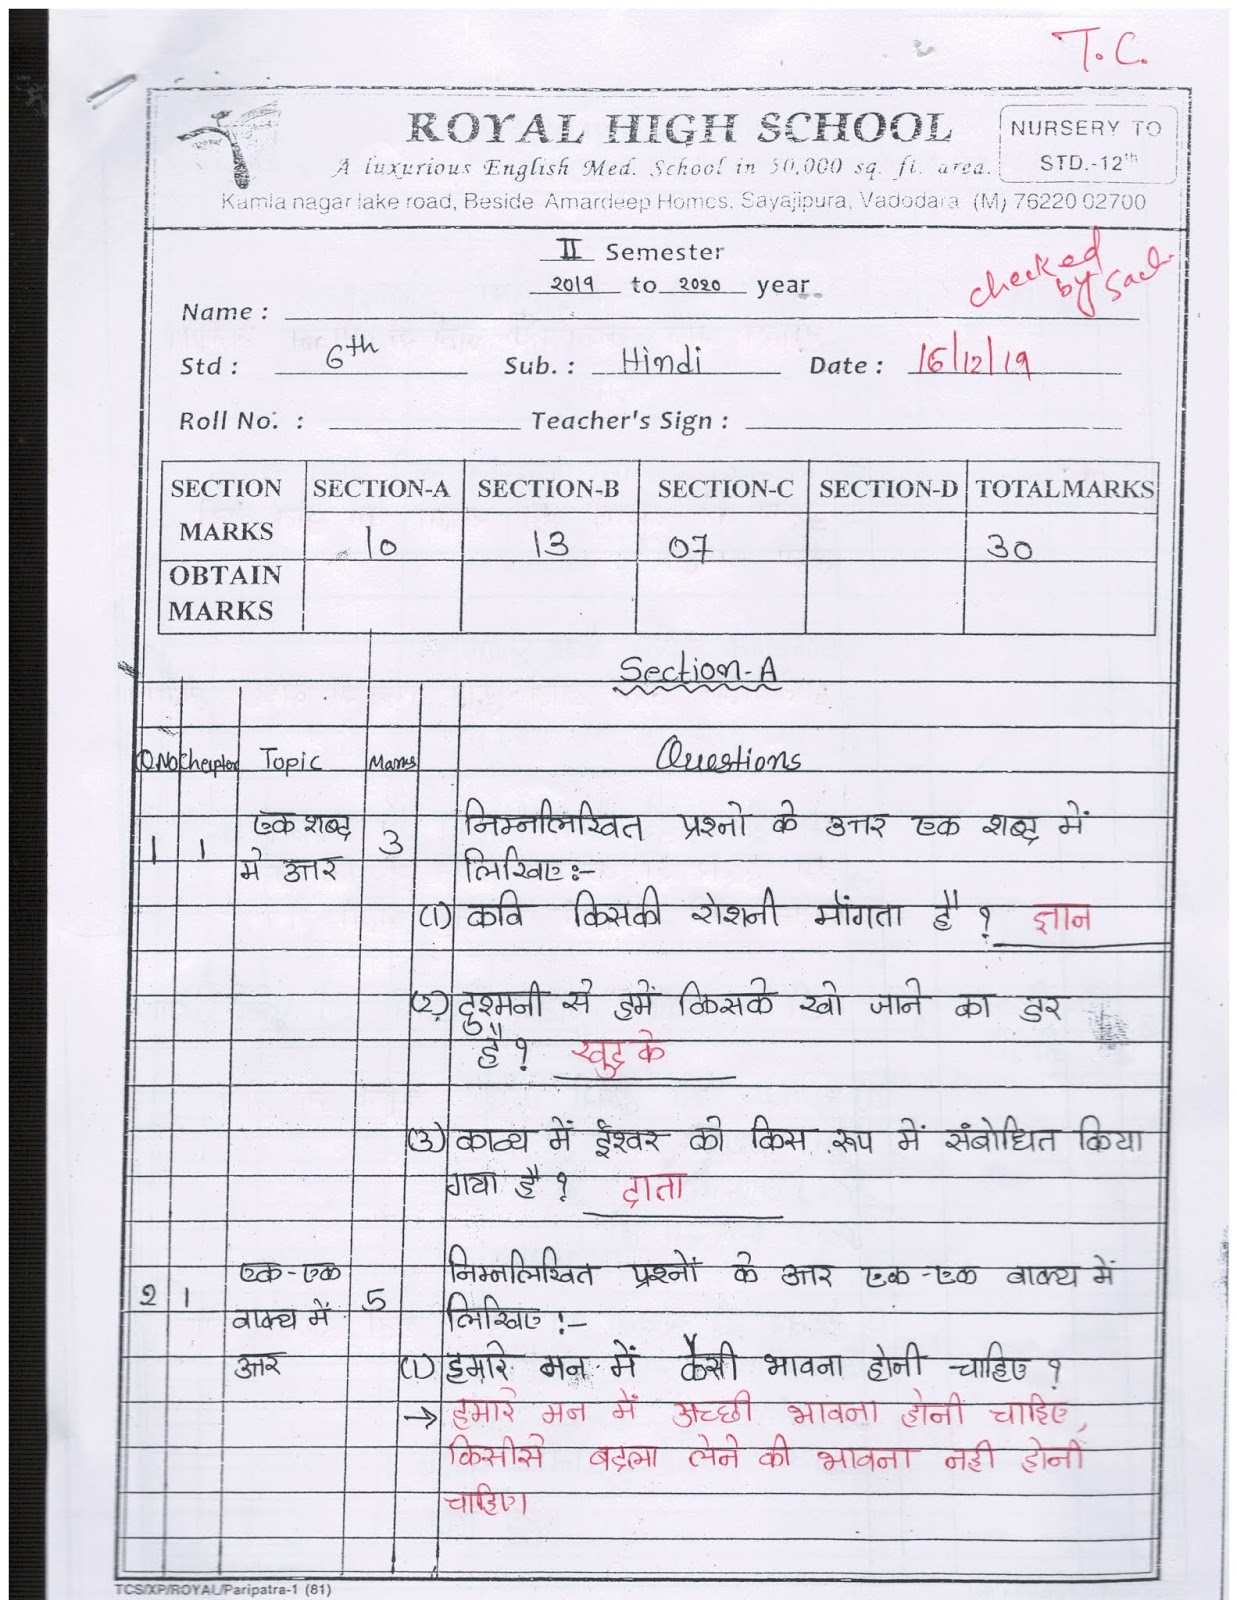 T.C.
ROYAL HIGH SCHOOL
NURSERY TO
STD.-12th
A luxurious English Med. School in 50,000 sq. ft. area.
Kamla nagar lake road, Beside Amardeep Homes, Sayajipura, Vadodara (M) 76220 02700
II Semester
2019 to 2020 year
checked
by
Name :
Std : 6th Sub. : Hindi Date : 16/12/19
Roll No. : Teacher's Sign :
SECTION SECTION-A SECTION-B SECTION-C SECTION-D TOTAL MARKS
MARKS 10 13 07 30
OBTAIN
MARKS
Section-A
Q.No Chapter Topic Marks Questions
1 1 एक शब्द 3 निम्नलिखित प्रश्नो के उत्तर एक शब्द में
मे उत्तर लिखिए:-
(1) कवि किसकी रोशनी माँगता है ? ज्ञान
(2) दुश्मनी से हमें किसके खो जाने का डर
है ? खुद के
(3) काव्य में ईश्वर को किस रूप में संबोधित किया
गया है ? दाता
2 1 एक-एक 5 निम्नलिखित प्रश्नों के उत्तर एक-एक वाक्य में
वाक्य में लिखिए :-
उत्तर (1) हमारे मन में कैसी भावना होनी चाहिए ?
→ हमारे मन में अच्छी भावना होनी चाहिए,
किसीसे बदला लेने की भावना नही होनी
चाहिए।
TCS/XP/ROYAL/Paripatra-1 (81)